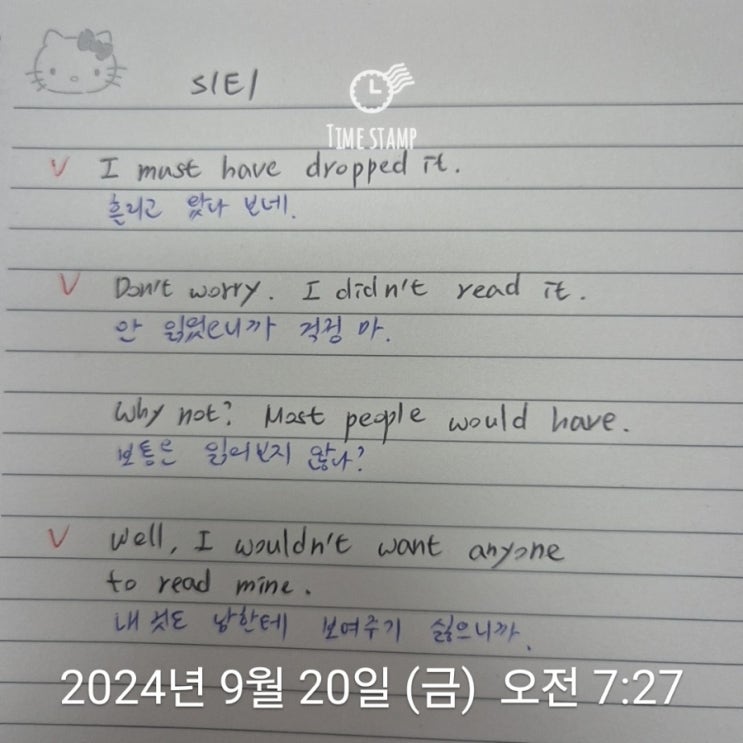 S1E1
TIME STAMP
V I must have dropped it.
흘리고 왔나 보네.
V Don't worry. I didn't read it.
안 읽었으니까 걱정 마.
Why not? Most people would have.
보통은 읽어보지 않나?
V Well, I wouldn't want anyone
to read mine.
내 것도 남한테 보여주기 싫으니까.
2024년 9월 20일 (금) 오전 7:27